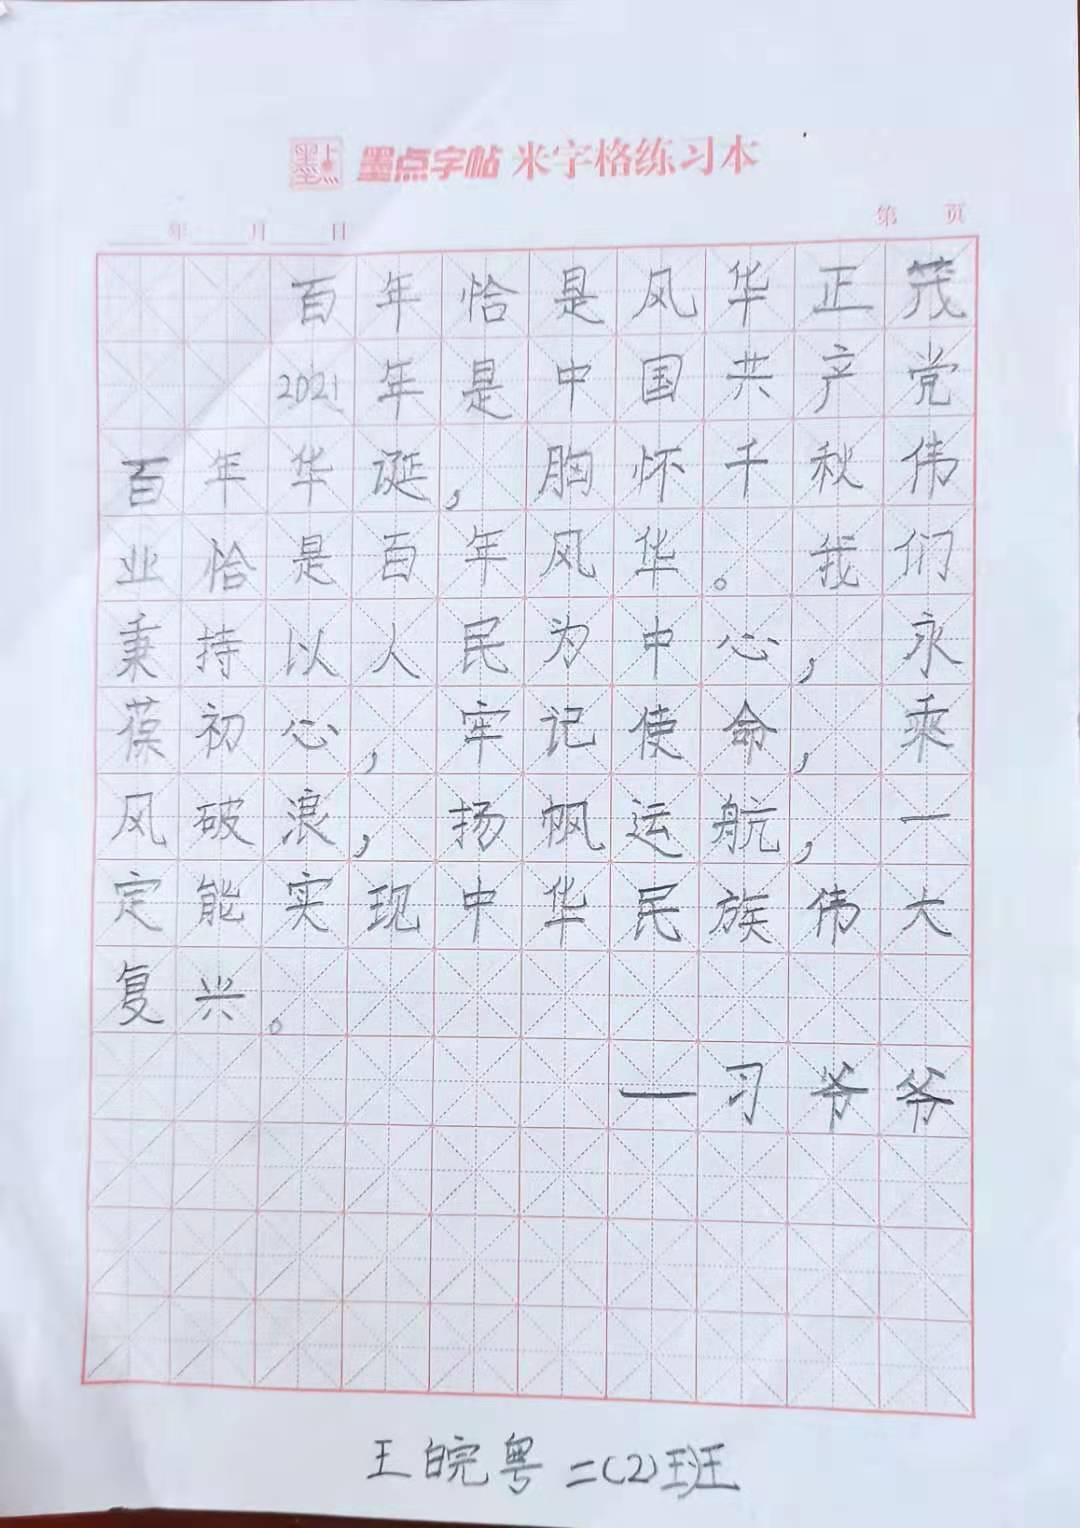 墨点 墨点字帖 米字格练习本
年 月 日 第 页
百年恰是风华正茂
2021年是中国共产党
百年华诞，胸怀千秋伟
业恰是百年风华。我们
秉持以人民为中心，永
葆初心，牢记使命，乘
风破浪，扬帆运航，一
定能实现中华民族伟大
复兴。
—习爷爷
王皖粤 二(2)班